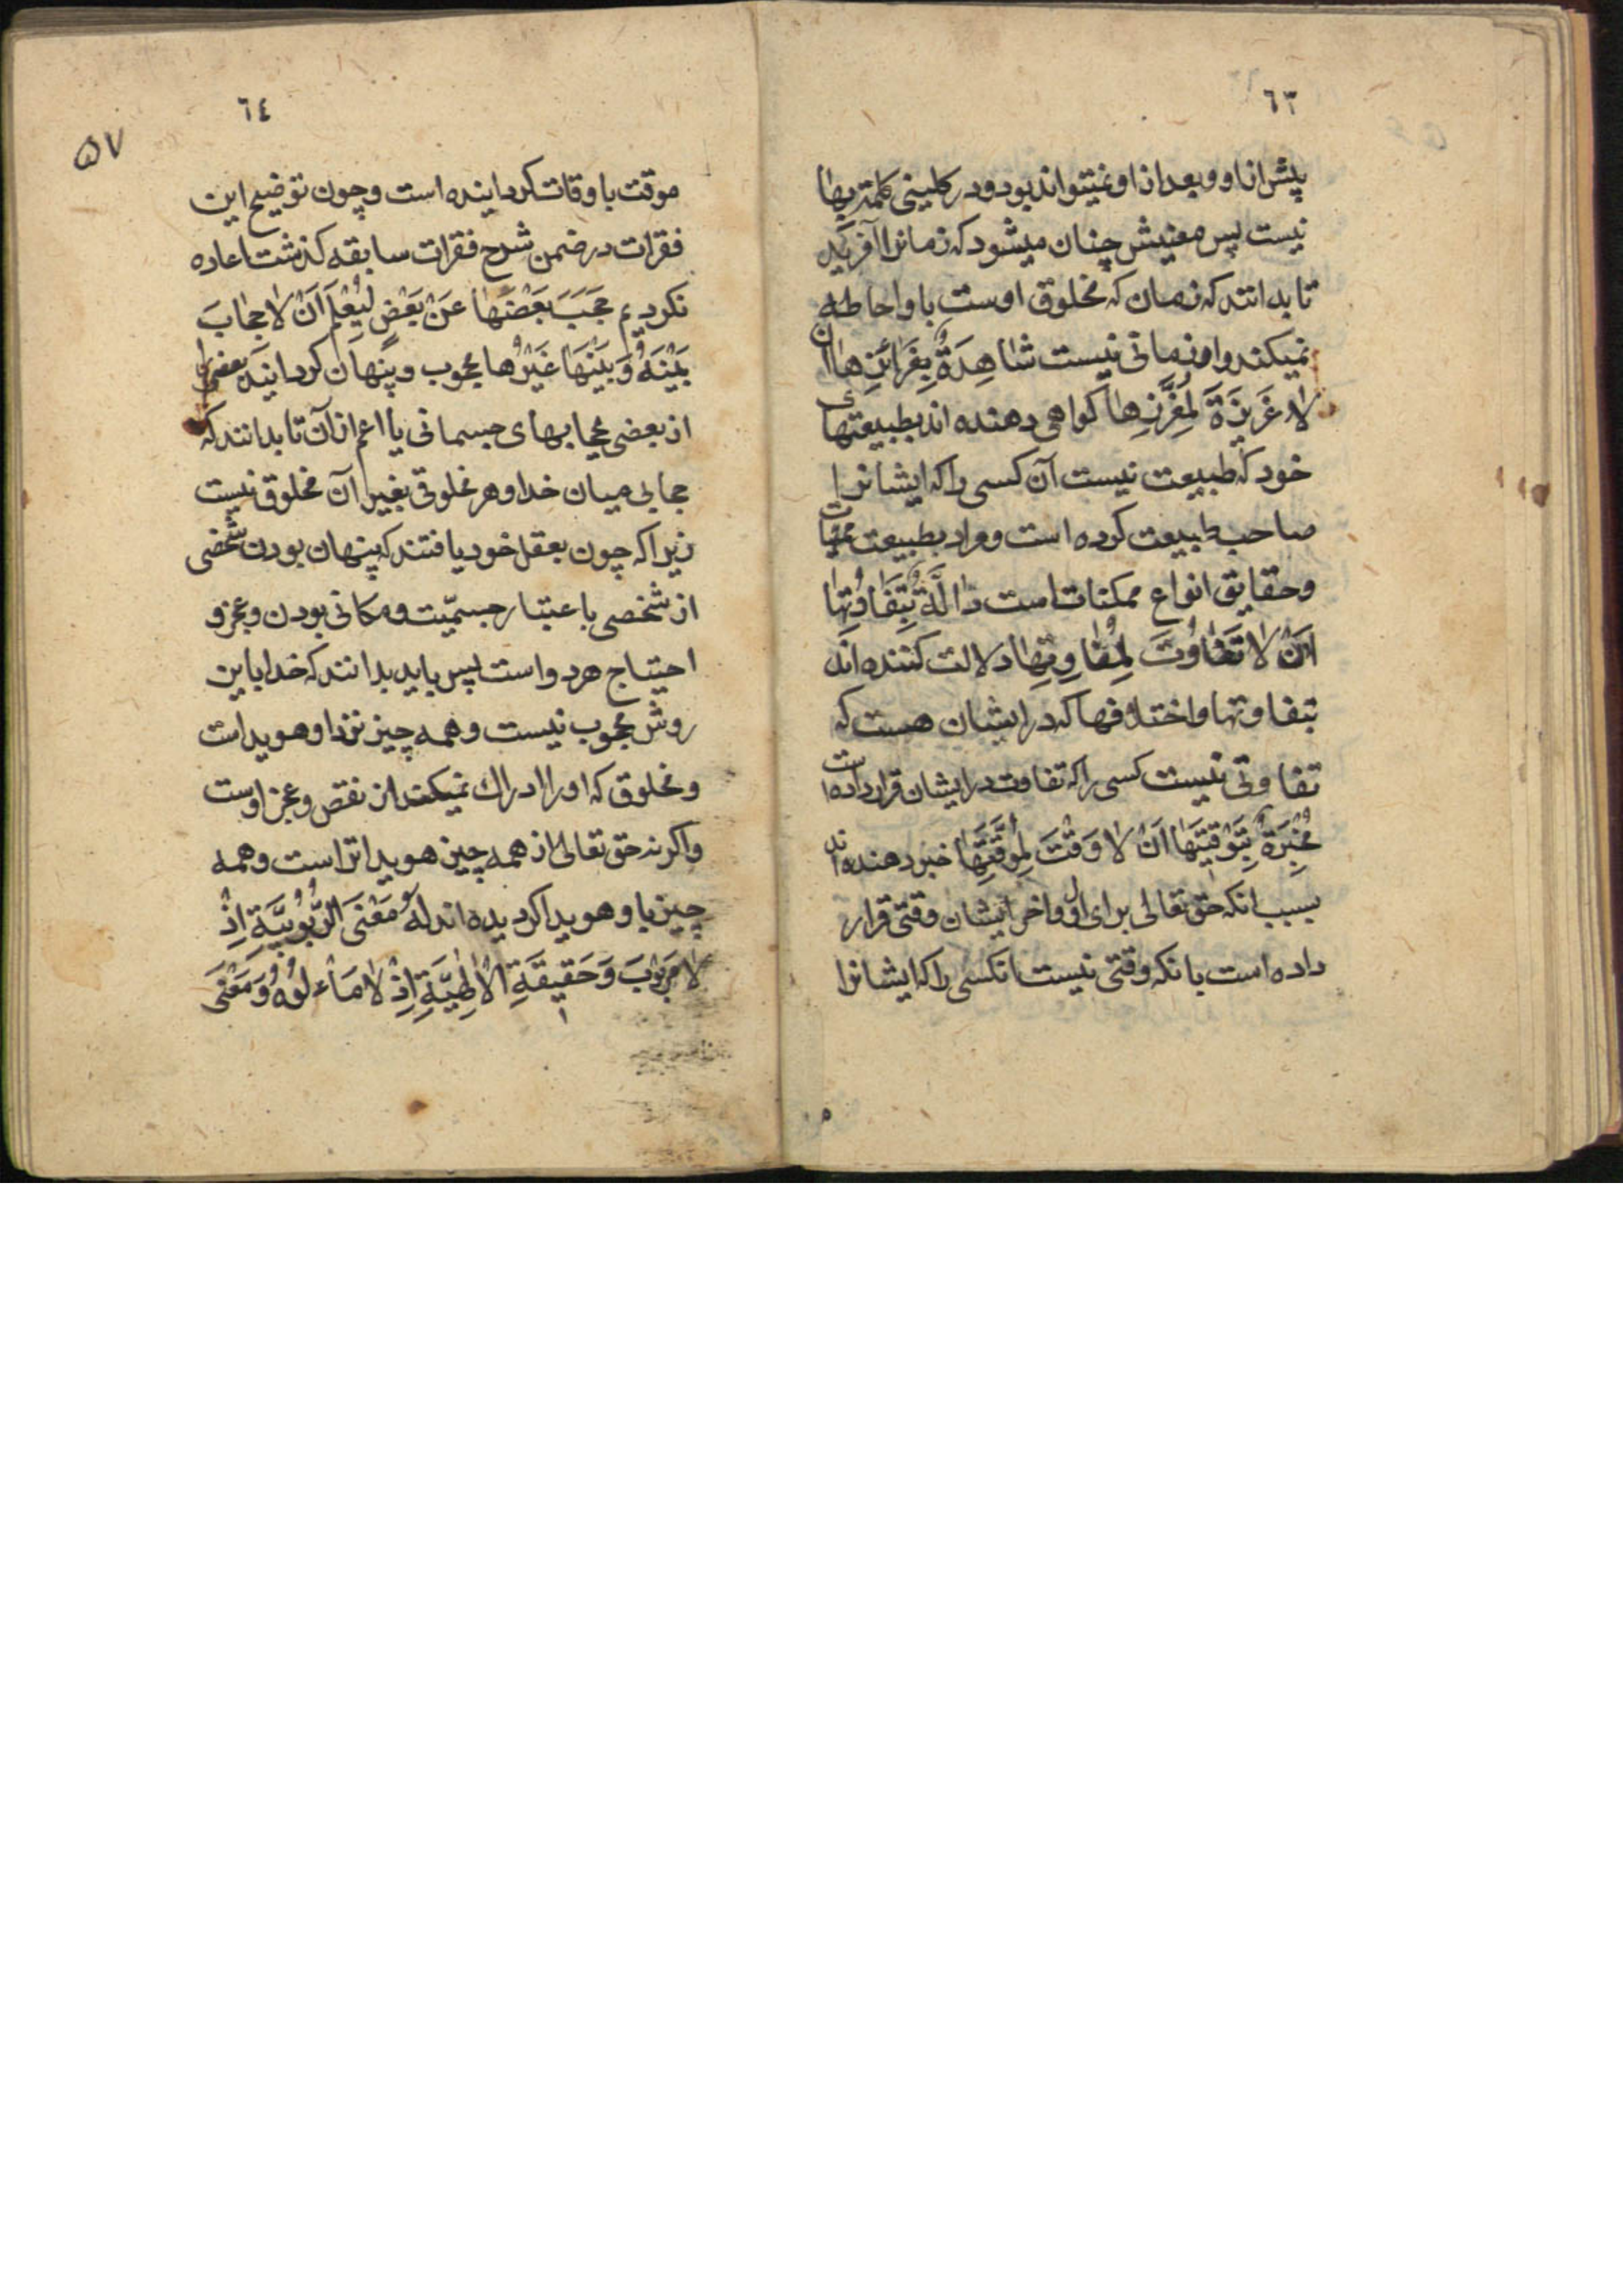 ٦٣
پیش از او و بعد از او نمیتواند بود و در کلینی کلمه بها
نیست پس معنیش چنان میشود که زمانرا آفرید
تا بدانند که زمان که مخلوق اوست باو احاطه
نمیکند و او زمانی نیست شاهِدَةٌ بِغَرائزِها ان
لا غَریزَةَ لِمُغَرِّزِها کواهی دهنده اند بطبیعتهای
خود که طبیعت نیست آن کسی را که ایشانرا
صاحب طبیعت کرده است و مراد بطبیعت مهیات
و حقایق انواع ممکنات است دالَّةٌ بِتَفاوُتِها
اَنْ لا تَفاوُتَ لِمُفاوِتِها دلالت کننده اند
بتفاوتها و اختلافها که در ایشان هست که
تفاوتی نیست کسی را که تفاوت در ایشان قرار داده است
مُخْبِرَةٌ بِتَوْقیتِها اَنْ لا وَقْتَ لِمُوَقِّتِها خبر دهنده اند
بسبب انکه حق تعالی برای اول و اخر ایشان وقتی قرار
داده است بانکه وقتی نیست انکسی را که ایشانرا
٦٤
۵۷
موقت باوقات کردانیده است و چون توضیح این
فقرات در ضمن شرح فقرات سابقه کذشت اعاده
نکردیم حَجَبَ بَعْضَها عَنْ بَعْضٍ لِیُعْلَمَ اَنْ لا حِجابَ
بَیْنَهُ وَ بَیْنَها غَیْرُها محجوب و پنهان کردانید بعضی را
از بعضی بحجابهای جسمانی یا اعم از آن تا بدانند که
حجابی میان خدا و هر مخلوقی بغیر آن مخلوق نیست
زیرا که چون بعقل خود یافتند که پنهان بودن شخصی
از شخصی باعتبار جسمیّت و مکانی بودن و عجز و
احتیاج هر دو است پس باید بدانند که خدا باین
روش محجوب نیست و همه چیز نزد او هویداست
و مخلوق که او را ادراک نمیکند از نقص و عجز اوست
و اکر نه حق تعالی از همه چیز هویداتر است و همه
چیز باو هویدا کردیده اند لَهُ مَعْنَی الرُّبُوبیَّةِ اِذْ
لا مَربُوبَ وَ حَقیقَةِ الاِلٰهیَّةِ اِذْ لا مَأْلُوهَ وَ مَعْنَی